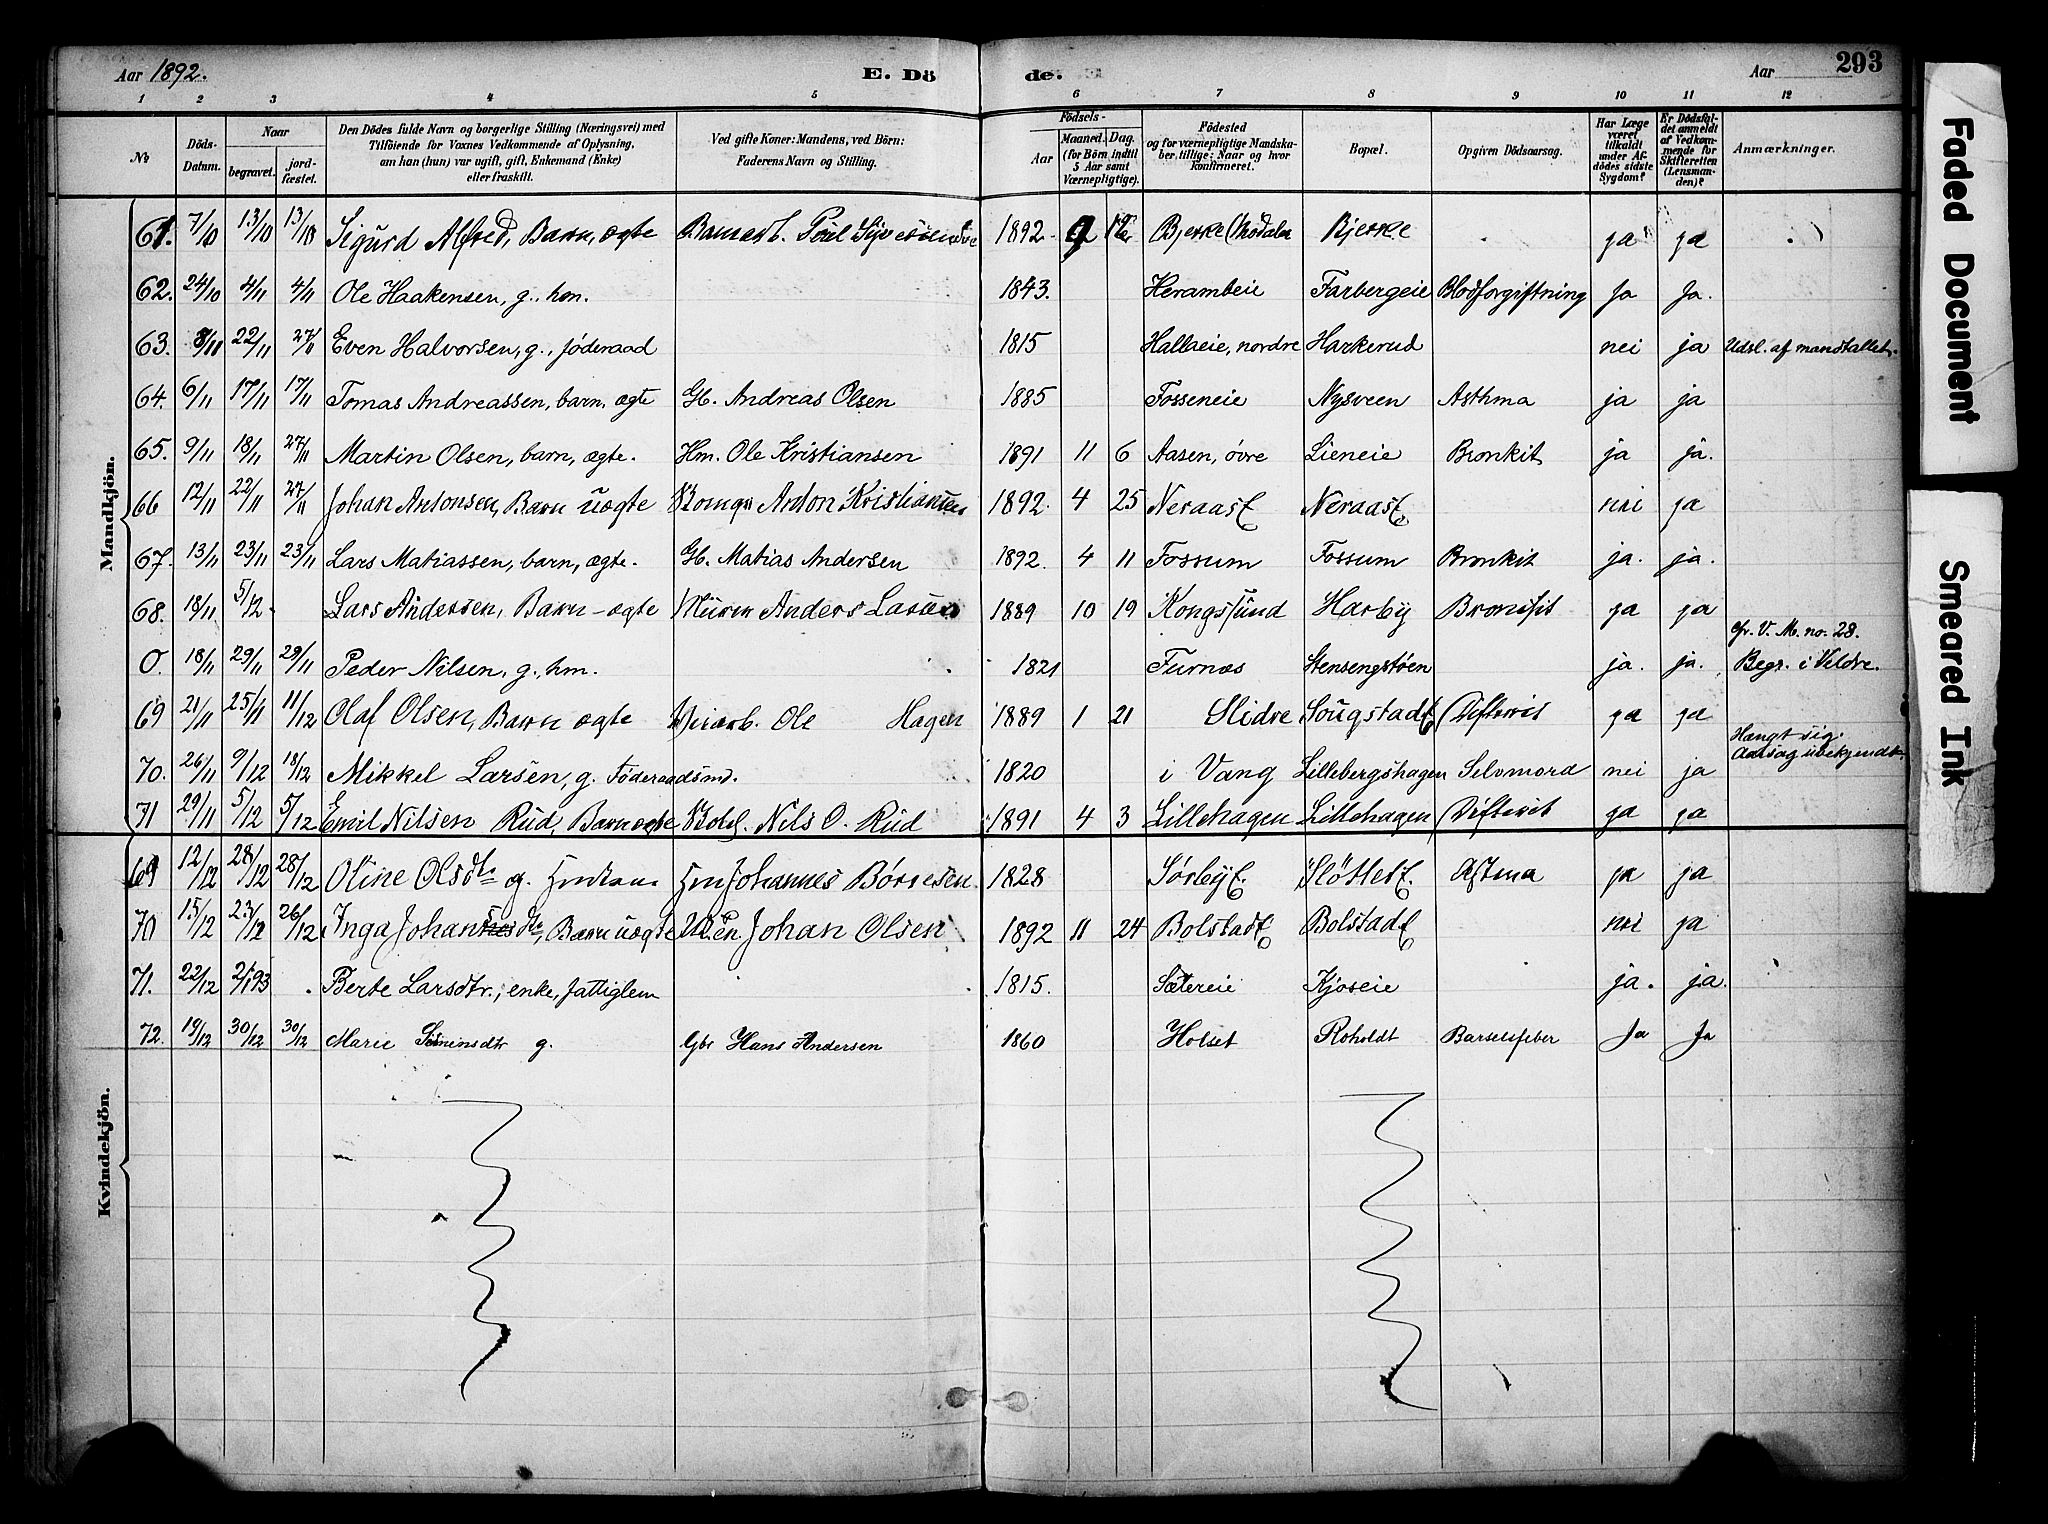 Aar 1892. E. Dö de. Aar 293
1 2 3 4 5 6 7 8 9 10 11 12
No Döds-Datum. Naar begravet. jord-fæstet. Den Dödes fulde Navn og borgerlige Stilling (Næringsvei) med Tilföiende for Voxnes Vedkommende af Oplysning, om han (hun) var ugift, gift, Enkemand (Enke) eller fraskilt. Ved gifte Koner: Mandens, ved Börn: Faderens Navn og Stilling. Födsels- Aar Maaned. Dag. (for Börn indtil 5 Aar samt Værnepligtige). Födested og for værnepligtige Mandska-ber tillige: Naar og hvor konfirmeret. Bopæl. Opgiven Dödsaarsag. Har Læge været tilkaldt under Af-dödes sidste Sygdom? Er Dödsfal-det anmeldt af Vedkom-mende for Skifteretten (Lensman-den)? Anmærkninger.
Mandkjön.
61. 7/10 13/10 13/10 Sigurd Alfred, Barn, ægte 1892 9 Bjerke Bjerke ja ja
62. 24/10 4/11 4/11 Ole Haakensen, g., hm. 1843. Herambeie Farbergeie Blodforgiftning Ja Ja.
63. 22/11 27/11 Even Halvorsen, g., föderaad 1815 Hallaeie, nordre Harkerud nei ja Udsl. af mandtallet.
64. 6/11 17/11 17/11 Tomas Andreassen, barn, ægte Gb. Andreas Olsen 1885 Fosseneie Nysveen Asthma ja ja
65. 9/11 18/11 27/11 Martin Olsen, barn, ægte. Hm. Ole Kristiansen 1891 11 6 Aasen, övre Lieneie Bronkit ja ja.
66 12/11 22/11 27/11 Johan Antonsen, Barn uægte Anton Kristiansen 1892. 4 25 Neraase Neraase nei ja
67. 13/11 23/11 23/11 Lars Matiassen, barn, ægte. Gb. Matias Andersen 1892. 4 11 Fossum Fossum Bronkit ja. ja.
68. 18/11 5/12. Lars Andersen, Barn - ægte Murer Anders Larsen 1889 10 19 Kongssund Harby Bronkit ja ja
O. 18/11 29/11 29/11 Peder Nilsen, g., hm. 1821 Furnæs Stensengstöen ja. ja. cfr. V. M. no. 28. Begr. i Veldre.
69 21/11 25/11 11/12 Olaf Olsen, Barn ægte Ole Hagen 1889 1 21 Slidre Difterit ja ja
70. 26/11 9/12 18/12 Mikkel Larsen, g. Föderaadsmd. 1820 i Vang Lillebergshagen Selvmord nei ja Hængt sig. Aarsag ubekjendt.
71 29/11 5/12 5/12 Emil Nilsen Rud, Barn ægte Nils O. Rud 1891 4 3 Lillehagen Lillehagen Difterit ja ja
Kvindekjön.
69 12/12 28/12 28/12 Oline Olsdtr g. Johannes Börresen 1828 Sörbye Astma ja ja
70 15/12 23/12 26/12 Inga Johansdtr, Barn uægte Johan Olsen 1892 11 24 Bolstade Bolstade nei ja
71. 22/12 2/1 93 Berte Larsdtr., enke, fattiglem 1815. Sætereie Kjoseie ja. ja.
72. 19/12 30/12 30/12 Marie Simensdtr g. Gbr Hans Andersen 1860 Holset Roholdt Barselsfeber Ja Ja
Faded Document
Smeared Ink